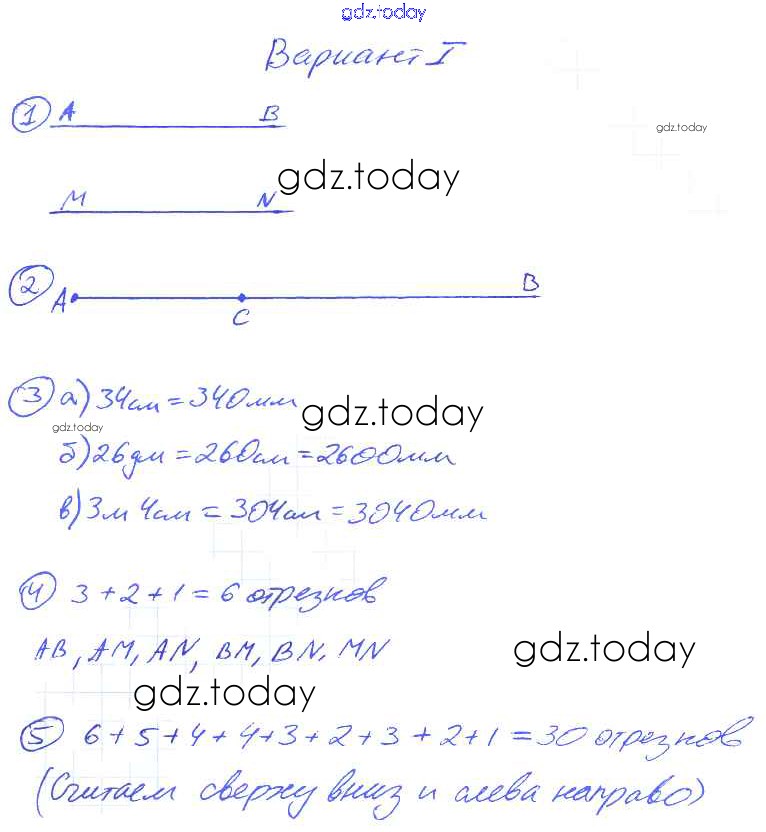 gdz.today
Вариант I
1 A B
gdz.today
gdz.today
M N
2 A C B
3 а) 34см = 340мм
gdz.today
gdz.today
б) 26дм = 260см = 2600мм
в) 3м 4см = 304см = 3040мм
4 3 + 2 + 1 = 6 отрезков
AB, AM, AN, BM, BN, MN
gdz.today
gdz.today
5 6 + 5 + 4 + 4 + 3 + 2 + 3 + 2 + 1 = 30 отрезков
(Считаем сверху вниз и слева направо)